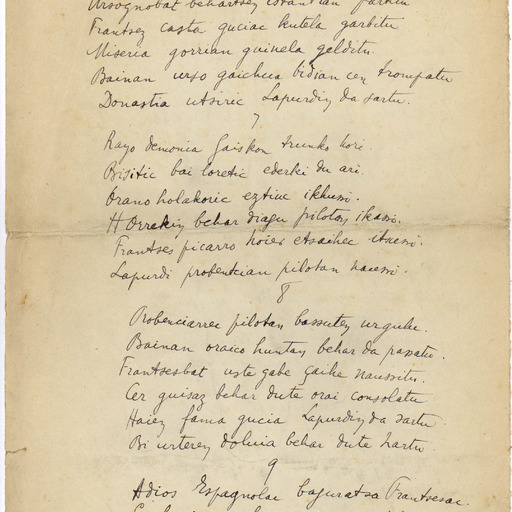 Ursognobat behartsez istantian
Frantsez casta guciac kutela garbitu
Miseria gorrian guinela gelditu.
Bainan urso gaichua bidian cen trompatu
Donastia utsiric Lapurdin da sartu.
7
Rayo demonia Gaiskon trunko hori.
Bisitic bai loretic ederki du ari.
Orano holakoric eztiuc ikhusi.
Horrekin behar diagu pilotan ikasi.
Frantses picarro hoiec etsaihec
Lapurdi probentzian pilotan nausi.
8
Probenciarrec pilotan bazuten urgulu.
Bainan oraico huntan behar da pasatu.
Frantsesbat uste gabe çaike naussitu.
Cer guisaz behar dute orai consolatu
Haiez fama gucia Lapurdin da sartu
Bi urteren dolua behar dute hartu.
9
Adios Espagnolac Frantsesac.